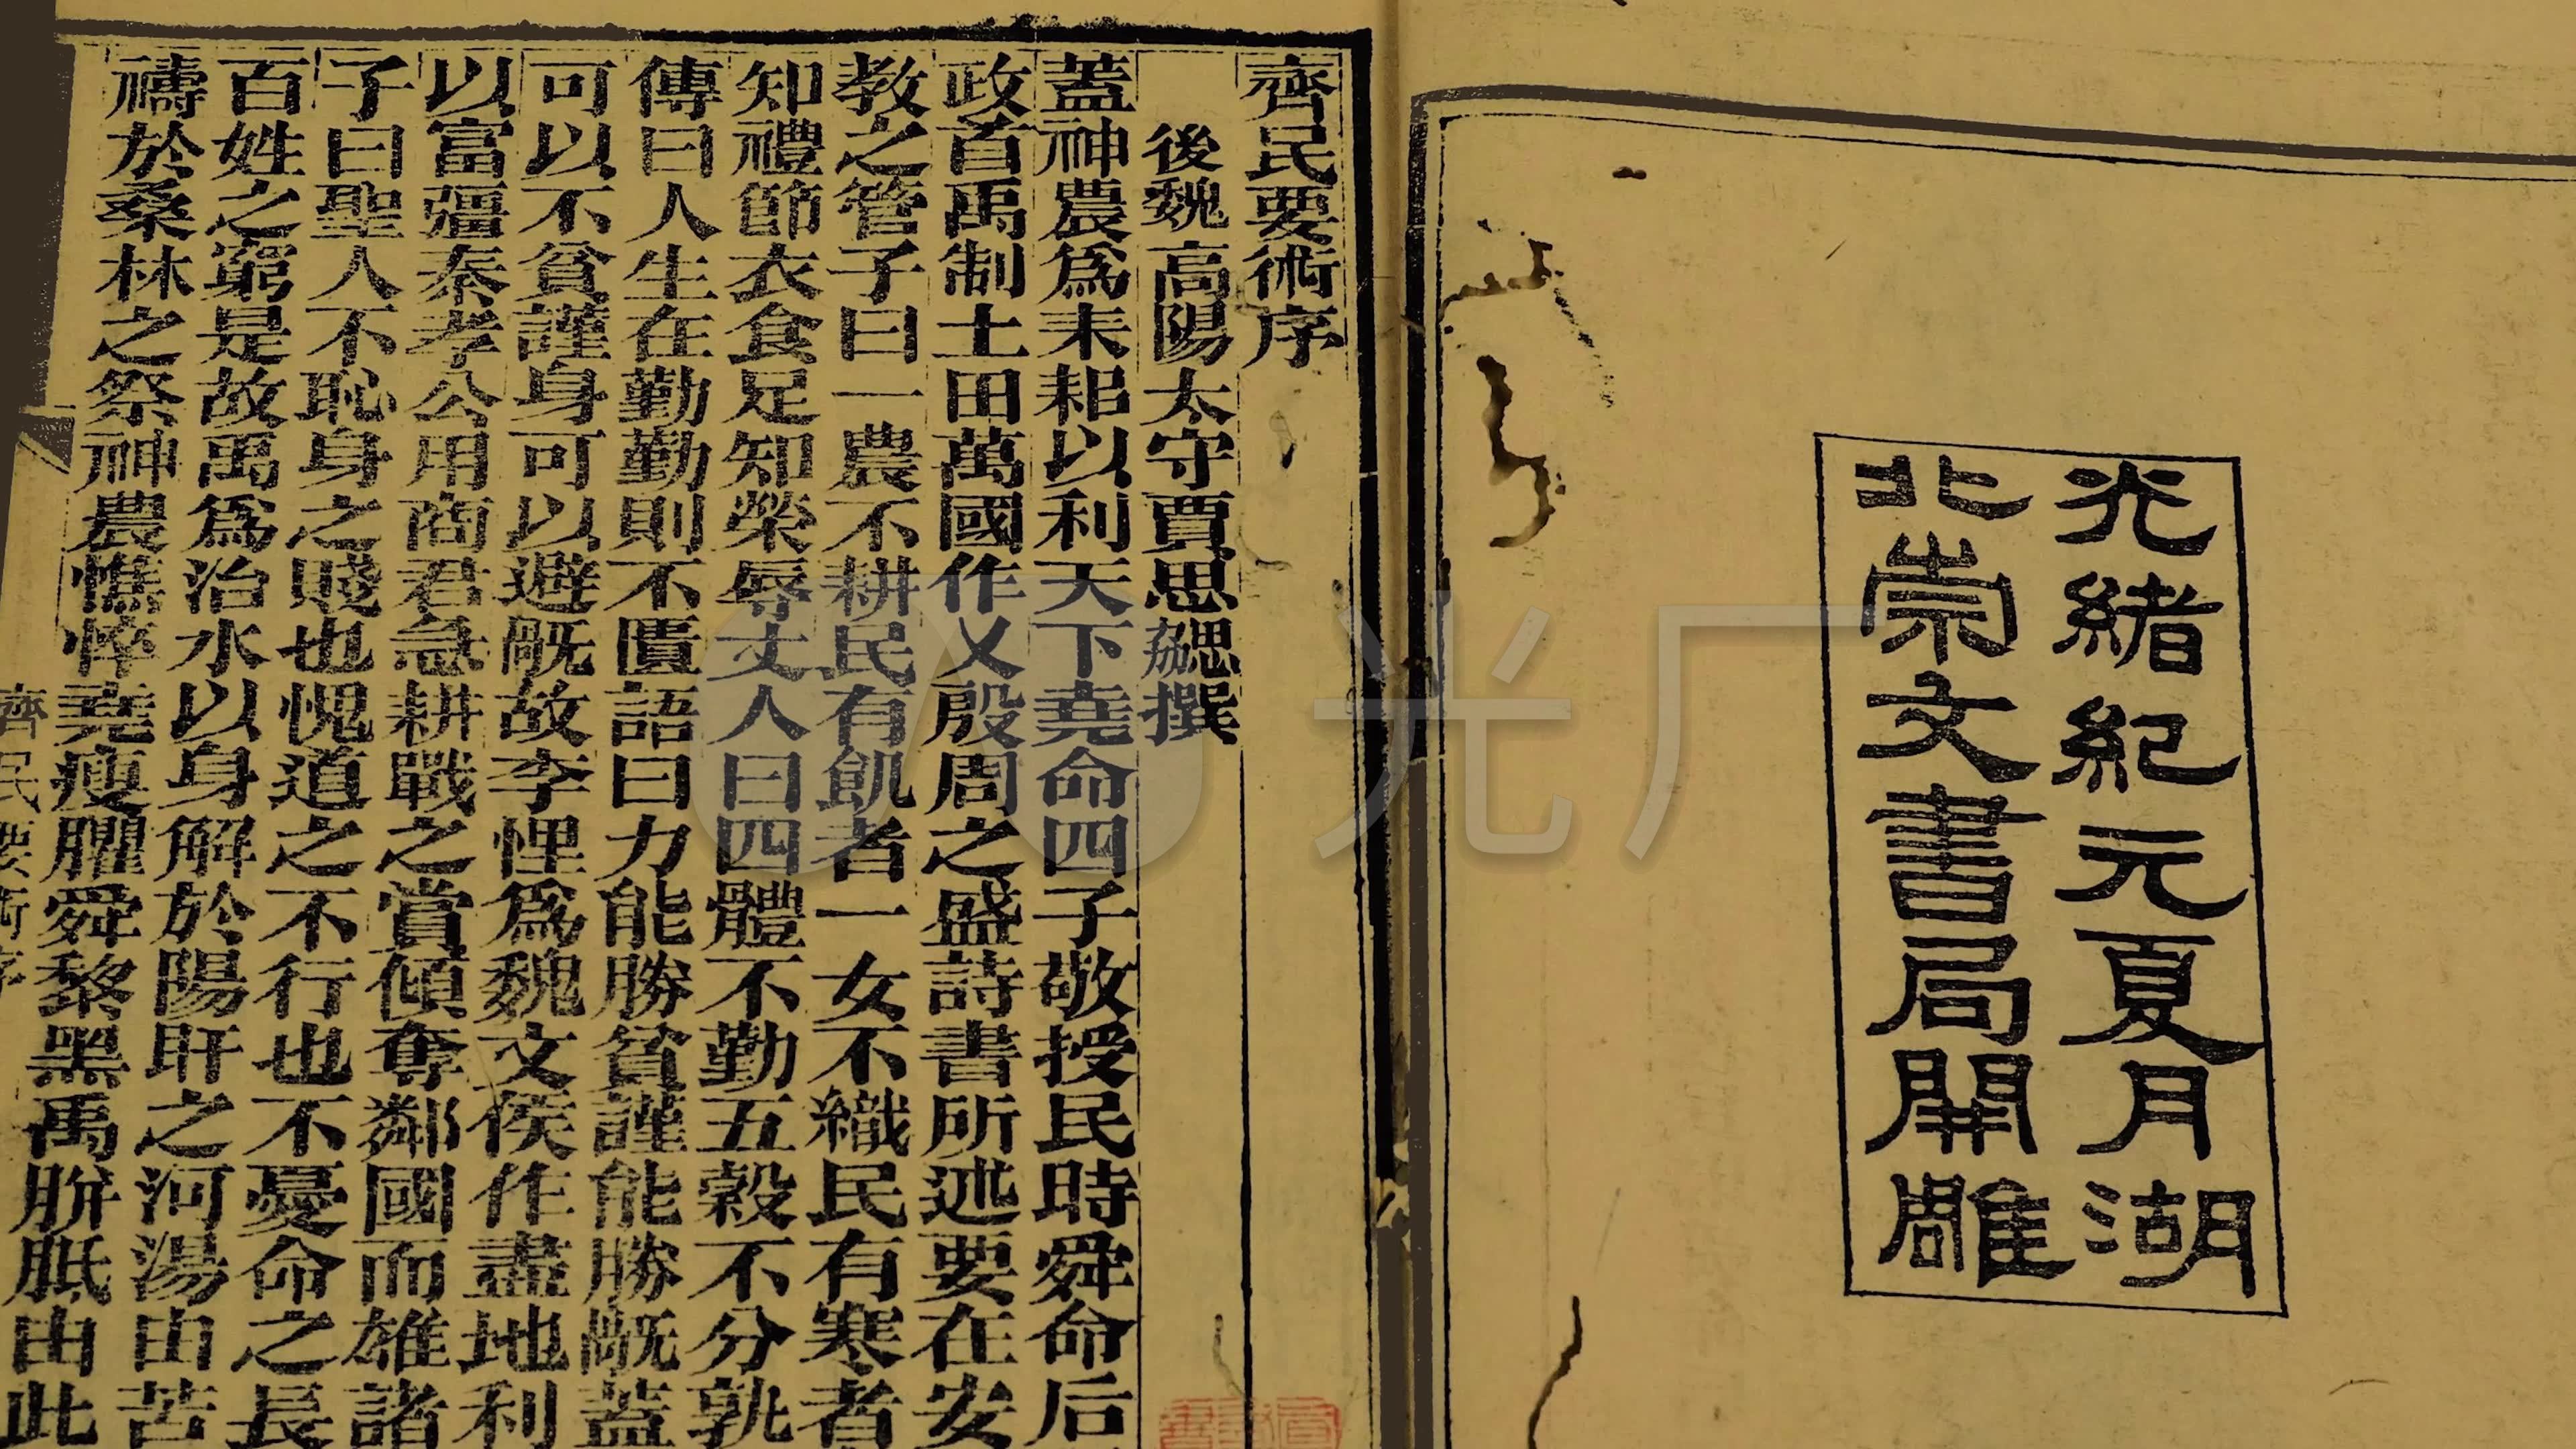 光緒紀元夏月湖
北崇文書局開雕
齊民要術序
後魏高陽太守賈思勰撰
蓋神農為耒耜以利天下堯命四子敬授民時舜命后
政首禹制土田萬國作乂殷周之盛詩書所述要在安
教之管子曰一農不耕民有飢者一女不織民有寒者
知禮節衣食足知榮辱丈人曰四體不勤五穀不分孰
傳曰人生在勤勤則不匱語曰力能勝貧謹能勝禍蓋
可以不貧謹身可以避禍故李悝為魏文侯作盡地利
以富彊秦孝公用商君急耕戰之賞傾奪鄰國而雄諸
子曰聖人不恥身之賤也愧道之不行也不憂命之長
百姓之窮是故禹為治水以身解於陽盱之河湯由苦
禱於桑林之祭神農憔悴堯瘦臞舜黎黑禹胼胝由此
齊民要術序
光厂